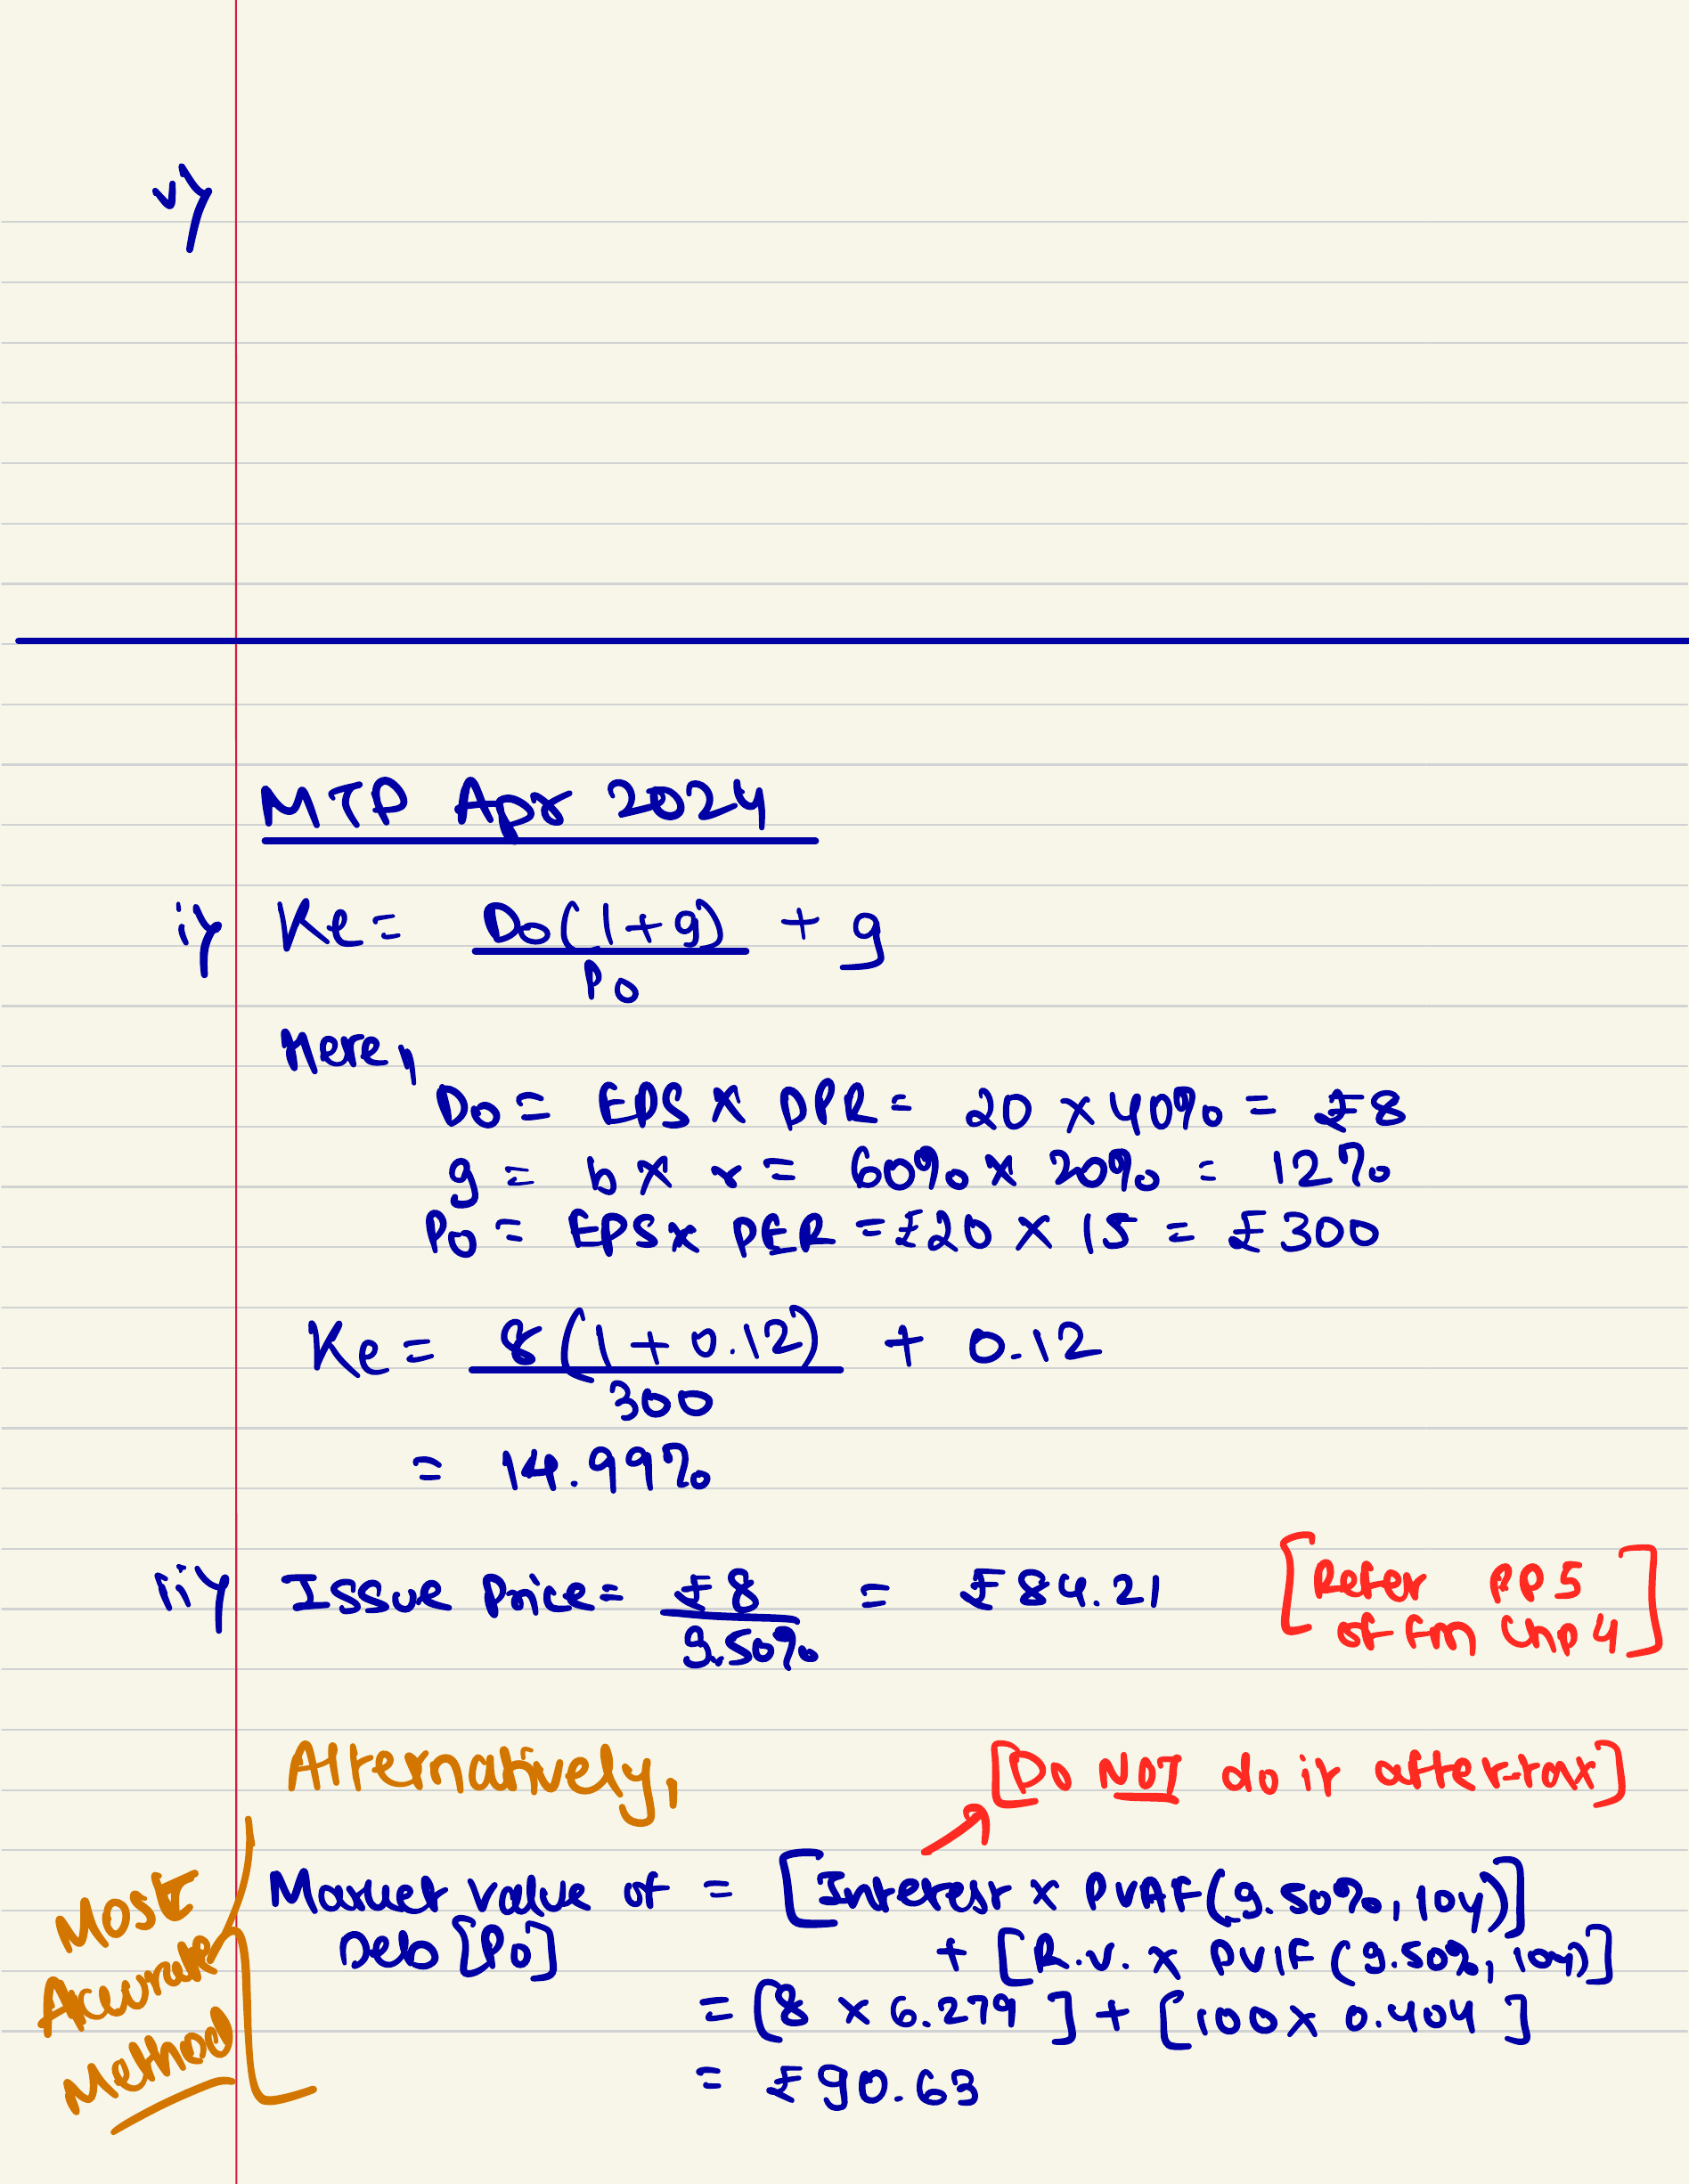 v)
MTP Apr 2024
i) Ke = D0(1+g) + g
P0
Here,
D0 = EPS X DPR = 20 x 40% = ₹8
g = b x r = 60% x 20% = 12%
P0 = EPS x PER = ₹20 x 15 = ₹300
Ke = 8(1+0.12) + 0.12
300
= 14.99%
ii) Issue Price = ₹8 = ₹84.21
9.50%
[Refer PP5
of fm Chp 4]
Alternatively,
[Do NOT do it after-tax]
Most
Accurate
Method
Market value of = [Interest x PVAF(9.50%, 10y)]
Deb [P0] + [R.V. x PVIF (9.50%, 10y)]
= [8 x 6.279] + [100 x 0.404]
= ₹90.63